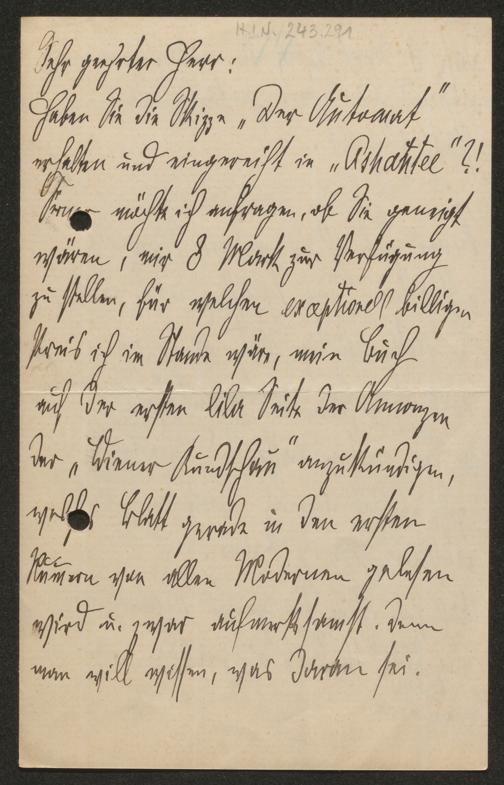 H.I.N. 243.291
Sehr geehrter Herr:
Haben Sie die Skizze „Der Automat"
erhalten und eingereiht in „Ashantee"?!
Ferner möchte ich anfragen, ob Sie geneigt
wären, mir 8 Mark zur Verfügung
zu stellen, für welchen exceptionell billigen
Preis ich im Stande wäre, mein Buch
auf der ersten lila Seite der Annonzen
der „Wiener Rundschau" anzukündigen,
welches Blatt gerade in den ersten
Numern von allen Modernen gelesen
wird u. zwar aufmerksamst. Denn
man will wissen, was daran sei.